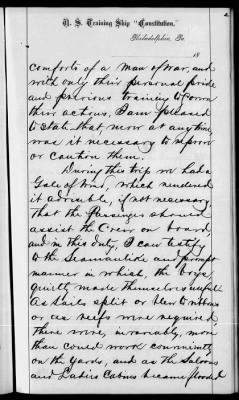 U. S. Training Ship "Constitution,"
Philadelphia, Pa.
18
comforts of a Man of War, and
with only their personal pride
and previous training to govern
their actions, I am pleased
to state that never at any time
was it necessary to reprove
or caution them.
During this trip we had a
Gale of Wind, which rendered
it advisable, if not necessary
that the Passengers should
assist the Crew on board,
and in this duty, I can testify
to the Seamanlike and prompt
manner in which, the boys
quietly made themselves useful.
As sails split or blew to ribbons
or as reefs were required
there were, invariably, more
than could work conveniently
on the yards, and as the Saloons
and Ladies Cabins became flooded